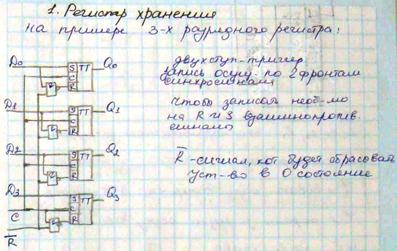 1. Регистр хранения
на примере 3-х разрядного регистра:
D0
S TT
C
R
Q0
D1
S TT
C
R
Q1
D2
S TT
C
R
Q2
D3
S TT
C
R
Q3
C
R
двухступ. триггер.
запись осущ. по 2 фронтам
синхросигнала
Чтобы записать необ-мо
на R и S взаимопротив.
сигналы
R - сигнал, кот. будет сбрасывать
уст-во в 0 состояние